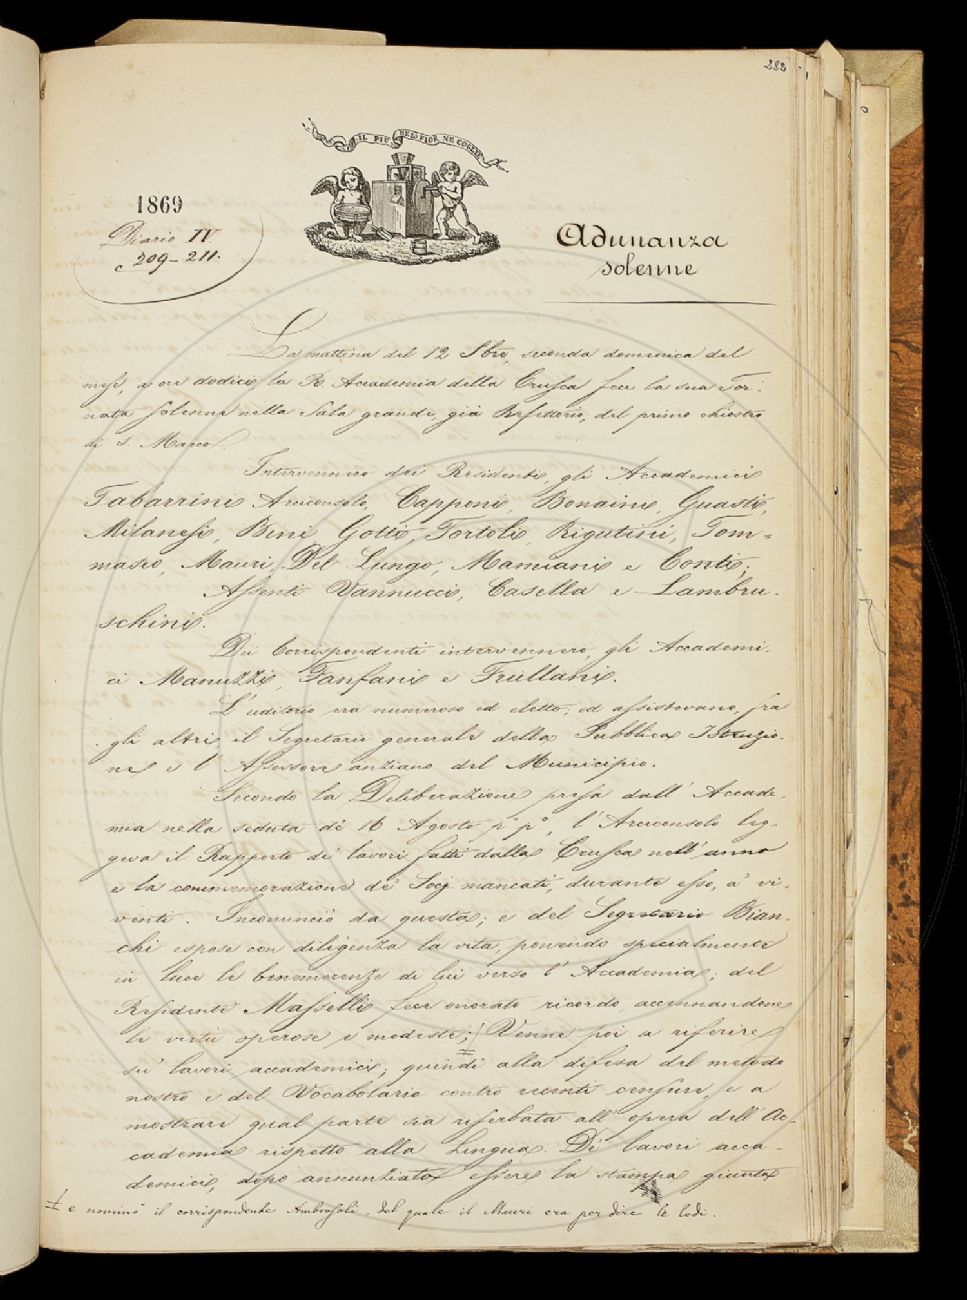 282
IL PIU BEL FIOR NE COGLIE
1869
Diario IV
c 209-211.
Adunanza
solenne
La mattina del 12 7bre, seconda domenica del
mese, a ore dodici, la R. Accademia della Crusca fece la sua Tor-
nata solenne nella Sala grande, già Refettorio, del primo chiostro
di S. Marco.
Intervennero dei Residenti gli Accademici
Tabarrini Arciconsolo, Capponi, Bonaini, Guasti,
Milanesi, Bini, Gotti, Tortoli, Rigutini, Tom-
maseo, Mauri, Del Lungo, Mamiani e Conti;
Assenti Vannucci, Casella e Lambru-
schini.
Dei Corrispondenti intervennero gli Accademi-
ci Manuzzi, Fanfani e Frullani.
L'uditorio era numeroso ed eletto; ed assistevano, fra
gli altri, il Segretario generale della Pubblica Istruzio-
ne e l'Assessore anziano del Municipio.
Secondo la Deliberazione presa dall'Accade-
mia nella seduta de' 16 Agosto p.° p.°, l'Arciconsolo leg-
geva il Rapporto de' lavori fatti dalla Crusca nell'anno
e la commemorazione de' Socj mancati, durante esso, a' vi-
venti. Incominciò da questa; e del Segretario Bian-
chi espose con diligenza la vita, ponendo specialmente
in luce le benemerenze di lui verso l'Accademia; del
Residente Masselli fece onorato ricordo, accennandone
le virtù operose e modeste; Venne poi a riferire
su' lavori accademici; quindi alla difesa del metodo
nostro e del Vocabolario contro recenti censure, e a
mostrare qual parte sia riserbata all'opera dell'Ac-
cademia rispetto alla Lingua. De' lavori acca-
demici, dopo annunziato essere la stampa giunta
e nominò il corrispondente Ambrosoli, del quale il Mauri era per dire le lodi.